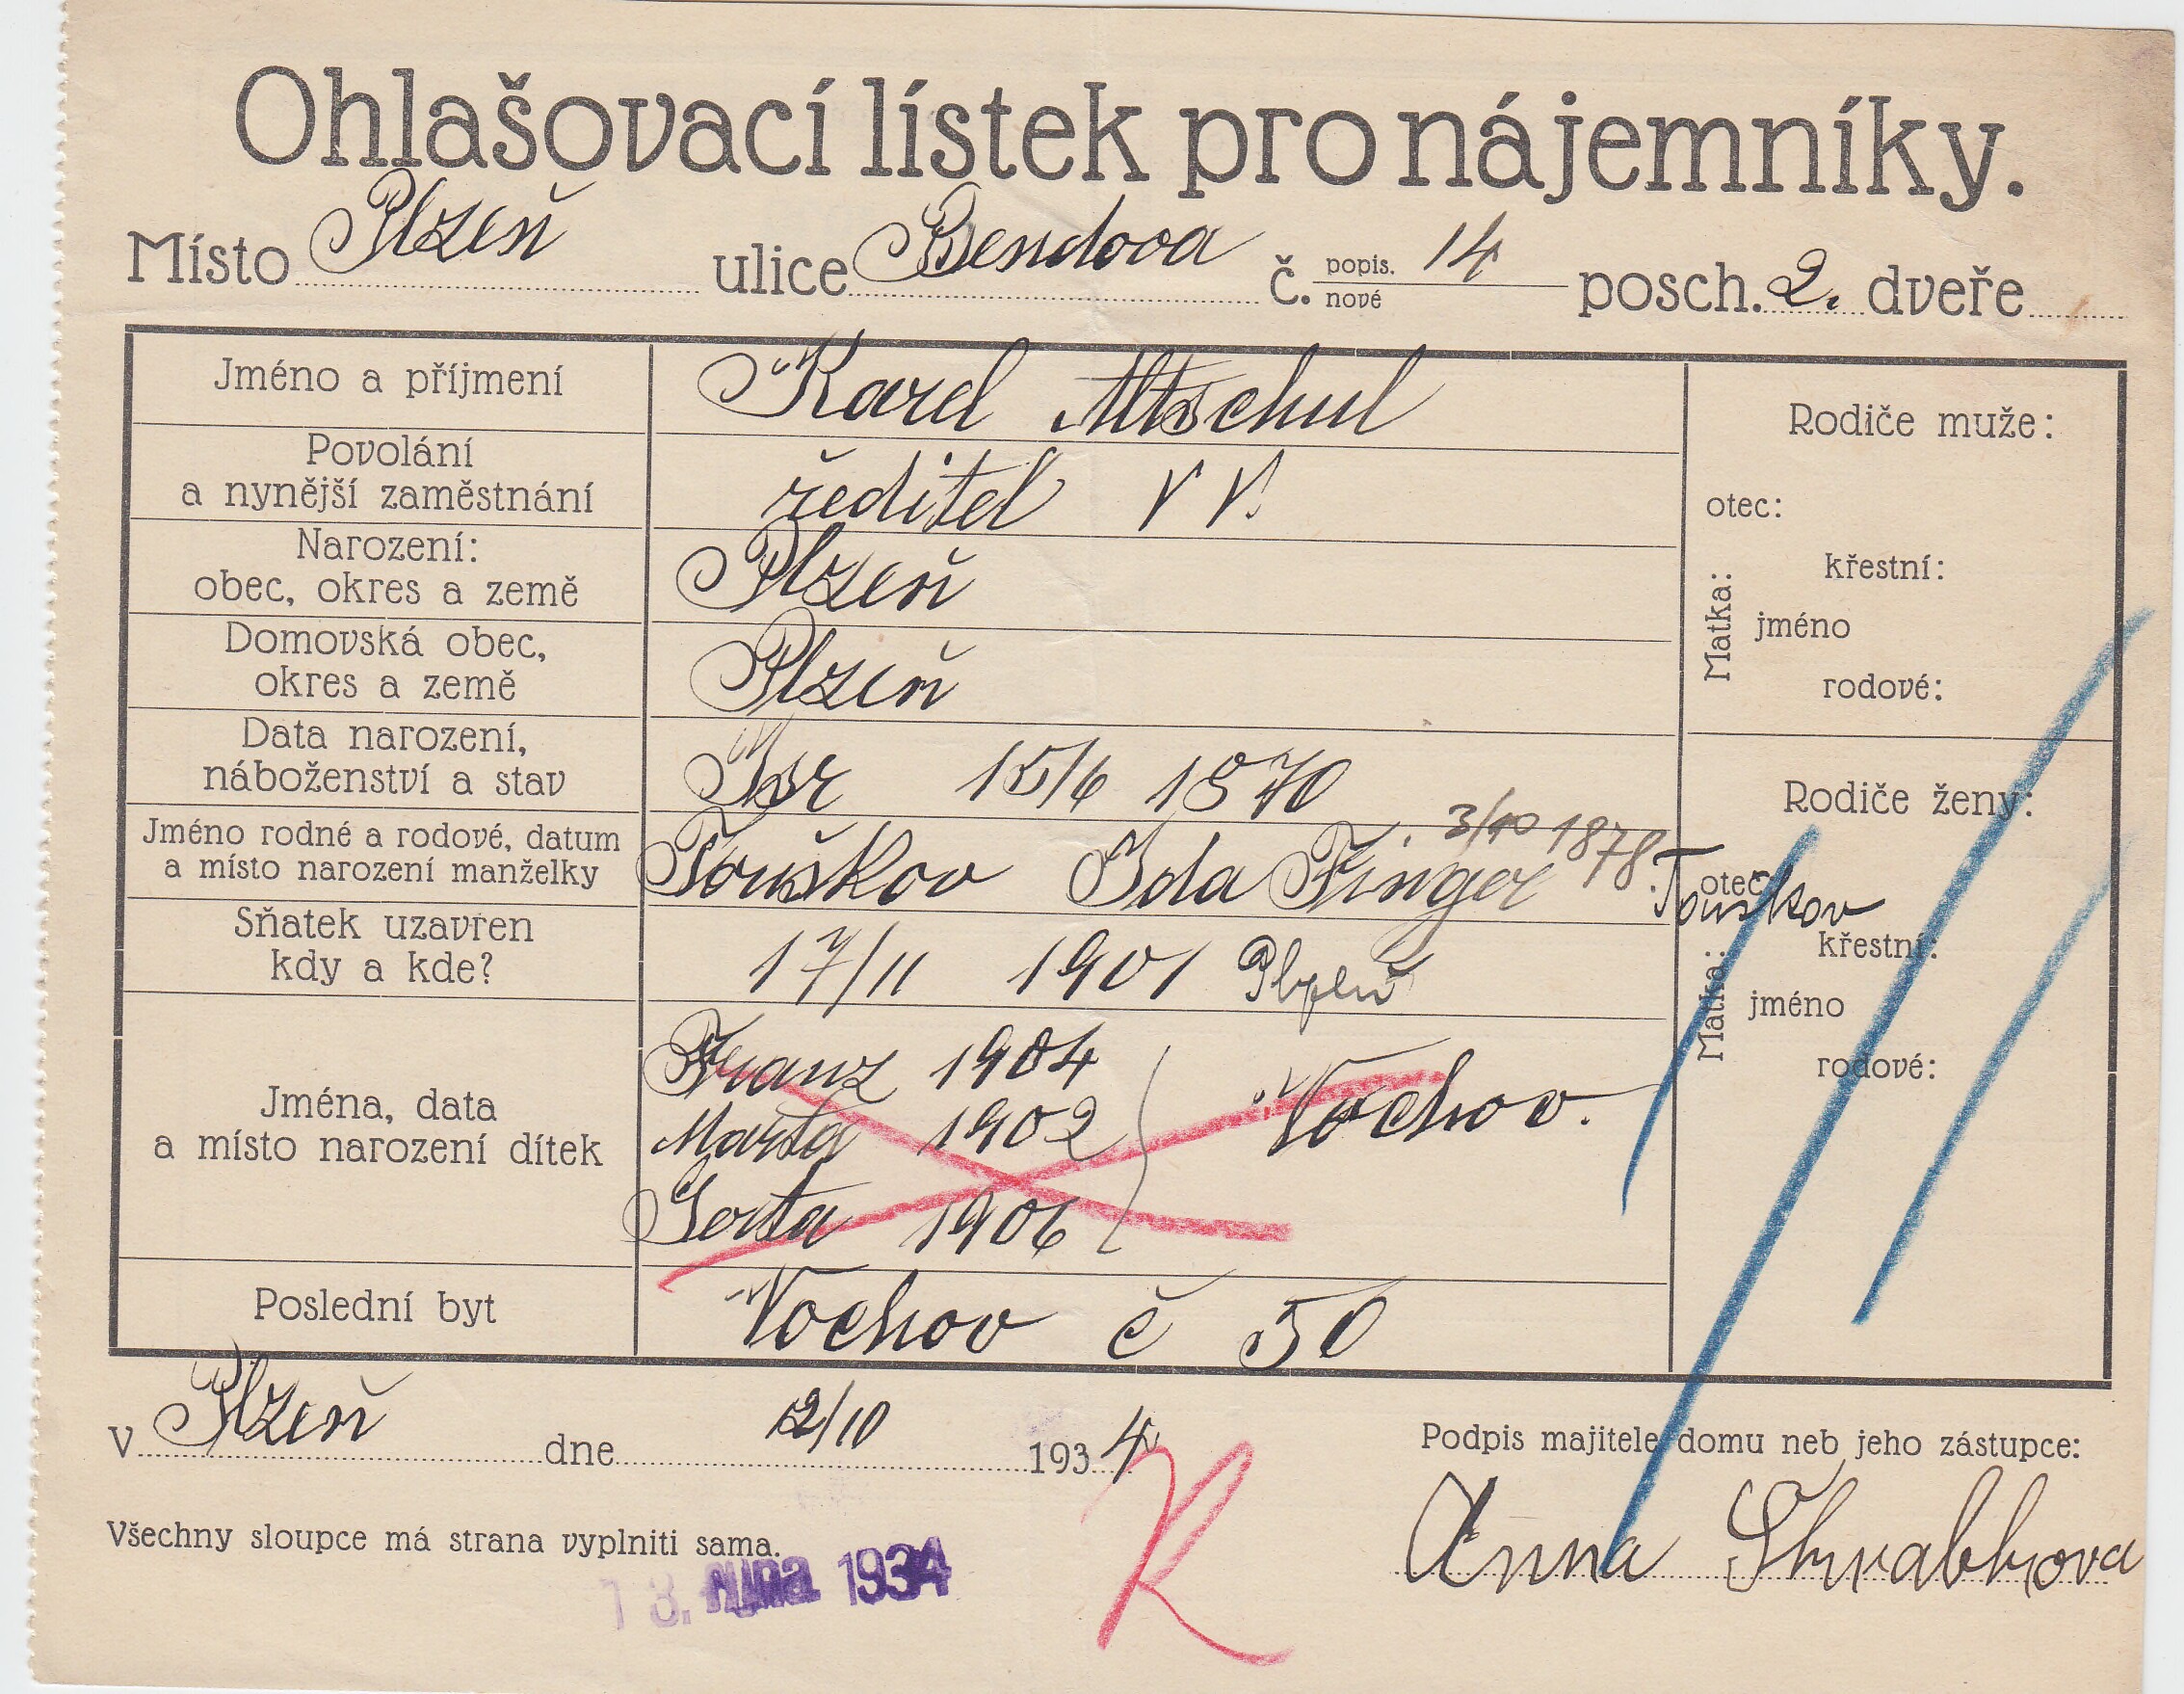 Ohlašovací lístek pro nájemníky.
Místo Plzeň ulice Bendova č. popis. nové 14 posch. 2. dveře
Jméno a příjmení Karel Altschul
Povolání
a nynější zaměstnání ředitel v v.
Narození:
obec, okres a země Plzeň
Domovská obec,
okres a země Plzeň
Data narození,
náboženství a stav Isr 15/6 1870
Jméno rodné a rodové, datum
a místo narození manželky Touškov Ida Finger 3/10 1878. Touškov
Sňatek uzavřen
kdy a kde? 17/11 1901 Plzeň
Jména, data
a místo narození dítek
Franz 1904
Marta 1902 Vochov.
Gerta 1906
Poslední byt Vochov č 50
Rodiče muže:
otec:
Matka:
křestní:
jméno
rodové:
Rodiče ženy:
otec:
Matka:
křestní:
jméno
rodové:
V Plzeň dne 12/10 1934
Podpis majitele domu neb jeho zástupce:
Anna
Všechny sloupce má strana vyplniti sama.
13. října 1934
K